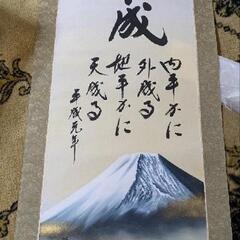 成
内平かに
外成る
地平かに
天成る
平成元年